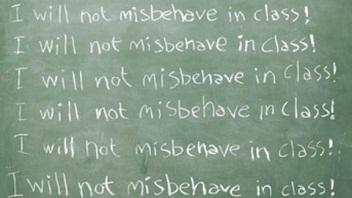 I will not misbehave in class!
I will not misbehave in class!
I will not misbehave in class!
I will not misbehave in class!
I will not misbehave in class!
I will not misbehave in class!